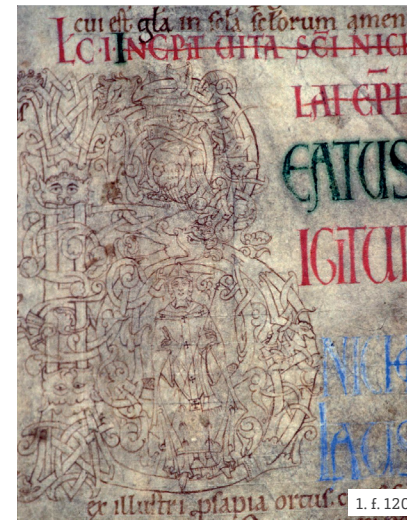 cui est gła in sc̄ła scłorum amen
INCPIT UITA SC̄I NICH
LAI EP̄I
B
EATUS
IGITUR
NICH
LAUS
ex illustri psapia ortus. c
1. f. 120